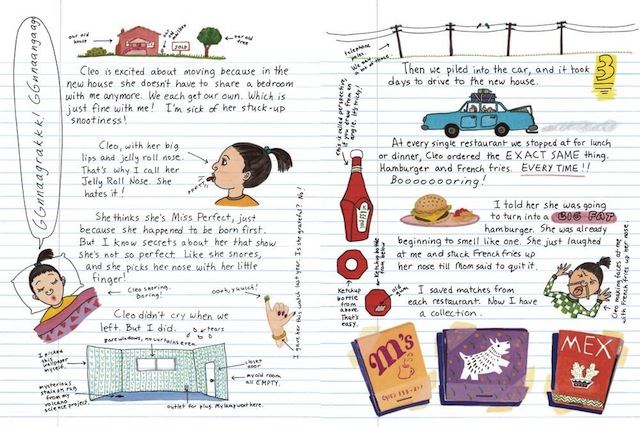 GGnnaagrakkk! GGnnaangaag
our old
house
our old
mailbox
SOLD
our old
tree
Cleo is excited about moving because in the
new house she doesn't have to share a bedroom
with me anymore. We each get our own. Which is
just fine with me! I'm sick of her stuck-up
snootiness!
Cleo, with her big
lips and jelly roll nose.
That's why I call her
Jelly Roll Nose. She
hates it!
She thinks she's Miss Perfect, just
because she happened to be born first.
But I know secrets about her that show
she's not so perfect. Like she snores,
and she picks her nose with her little
finger!
Cleo snoring.
Boring!
oooh, yuuuck!
I gave her this watch last year. Is she grateful? No!
Cleo didn't cry when we
left. But I did.
tears
Bare windows, no curtains even
I picked
this
wallpaper
myself.
closet
door
my old room
all EMPTY.
mysterious
stain on rug
from my
volcano
science project.
outlet for plug. My lamp went here.
telephone
poles.
We saw
a lot of these.
Then we piled into the car, and it took
3
days to drive to the new house.
This is called perspective,
if you draw from an
angle. It's tricky!
At every single restaurant we stopped at for lunch
or dinner, Cleo ordered the EXACT SAME thing.
Hamburger and French fries. EVERY TIME!!
Booooooooring!
I told her she was going
to turn into a BIG FAT
hamburger. She was already
beginning to smell like one. She just laughed
at me and stuck French fries up
her nose till Mom said to quit it.
Ketchup bottle
from below
Ketchup
bottle
from
above.
That's
easy.
old
gum
I saved matches from
each restaurant. Now I have
a collection.
Cleo making faces at me
with French fries up her nose
M's
MEX